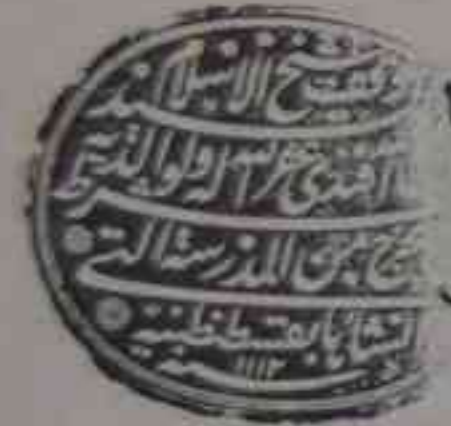 وقف شيخ الاسلام السيد
افندى غفر الله له ولوالديه
بشرط
يخرج من المدرسة التى
انشاها بقسطنطينية
سنة ١١١٢